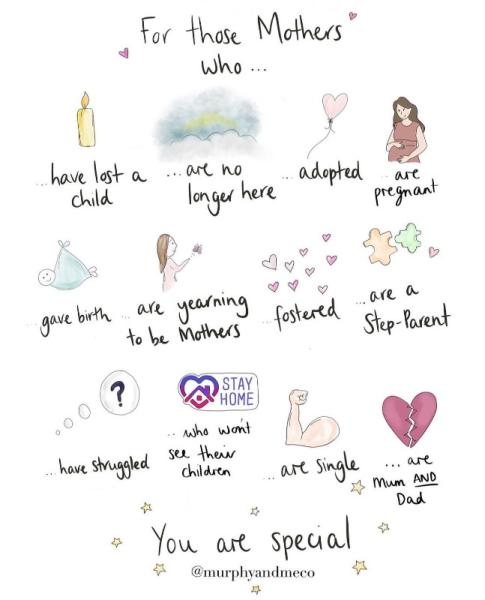 For those Mothers
who ...
... have lost a
child
... are no
longer here
... adopted
... are
pregnant
... gave birth
... are yearning
to be Mothers
... fostered
... are a
Step-Parent
?
... have struggled
STAY
HOME
... who won't
see their
children
... are single
... are
Mum AND
Dad
You are special
@murphyandmeco